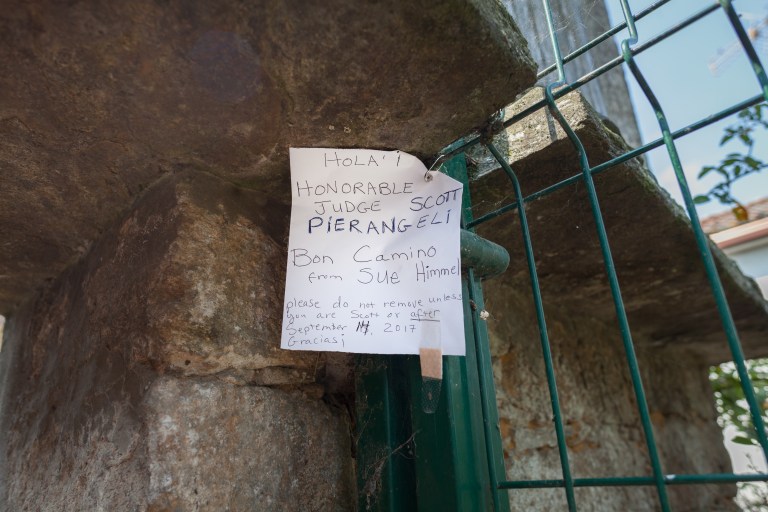 HOLA' i
HONORABLE
JUDGE SCOTT
PIERANGELI
Bon Camino
from Sue Himmel
please do not remove unless
you are Scott or after
September 14, 2017
Gracias¡